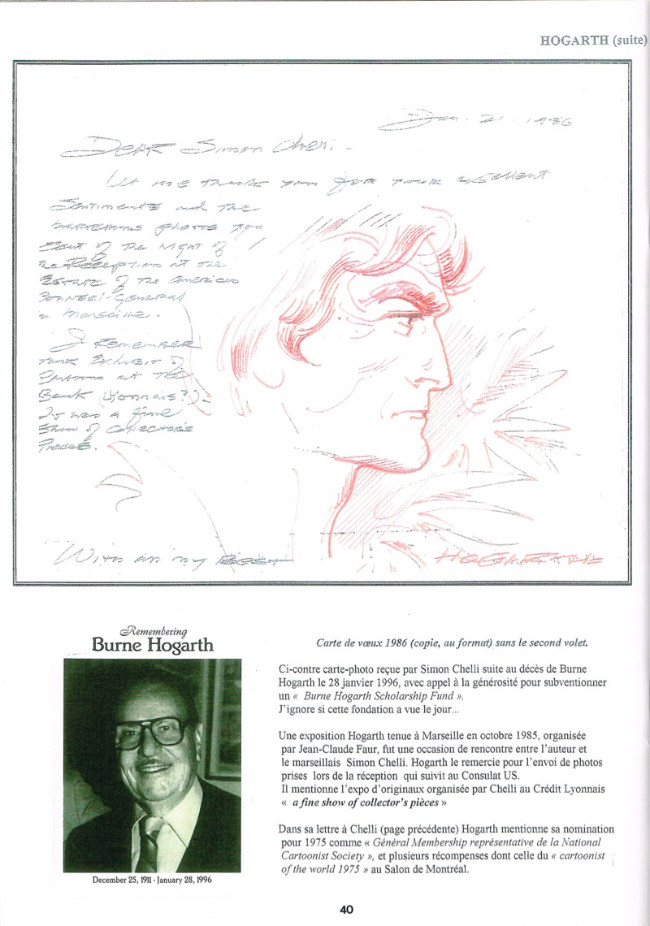 HOGARTH (suite)
Jan. 21. 1986
DEAR Simon Chelli -
Let me thank you for your excellent
Sentiments and the
photos you
Sent of the Night of
the Reception at the
Estate of the American
Consul-General
in Marseille.
I Remember
your Exhibit of
at the
Bank (Lyonnais?) -
It was a fine
Show of Collector's
Pieces.
With all my BEST
HOGARTH
Remembering
Burne Hogarth
December 25, 1911 - January 28, 1996
Carte de vœux 1986 (copie, au format) sans le second volet.
Ci-contre carte-photo reçue par Simon Chelli suite au décès de Burne
Hogarth le 28 janvier 1996, avec appel à la générosité pour subventionner
un « Burne Hogarth Scholarship Fund ».
J'ignore si cette fondation a vue le jour...
Une exposition Hogarth tenue à Marseille en octobre 1985, organisée
par Jean-Claude Faur, fut une occasion de rencontre entre l'auteur et
le marseillais Simon Chelli. Hogarth le remercie pour l'envoi de photos
prises lors de la réception qui suivit au Consulat US.
Il mentionne l'expo d'originaux organisée par Chelli au Crédit Lyonnais
« a fine show of collector's pièces »
Dans sa lettre à Chelli (page précédente) Hogarth mentionne sa nomination
pour 1975 comme « Général Membership représentative de la National
Cartoonist Society », et plusieurs récompenses dont celle du « cartoonist
of the world 1975 » au Salon de Montréal.
40